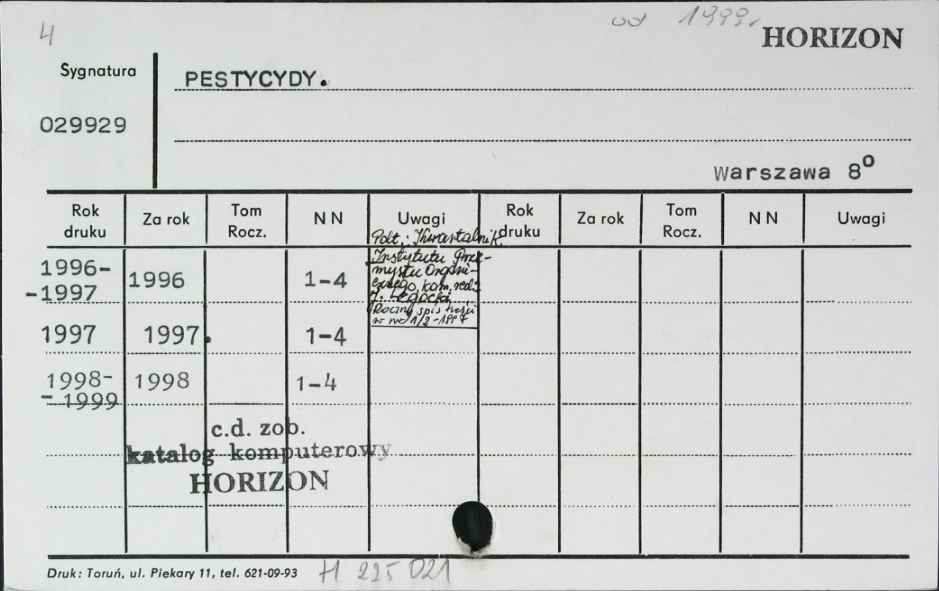 4
od 1999r.
HORIZON
Sygnatura
PESTYCYDY.
029929
Warszawa 8°
Rok druku Za rok Tom Rocz. NN Uwagi Rok druku Za rok Tom Rocz. NN Uwagi
Podt.: Kwartalnik
Instytutu Prze-
mysłu Organi-
cznego, kom. red.:
J. Legocki
Roczny spis treści
w nr 1/2-1997
1996-
-1997 1996 1-4
1997 1997. 1-4
1998-
-1999 1998 1-4
c.d. zob.
katalog komputerowy
HORIZON
Druk: Toruń, ul. Piekary 11, tel. 621-09-93
H 225 021